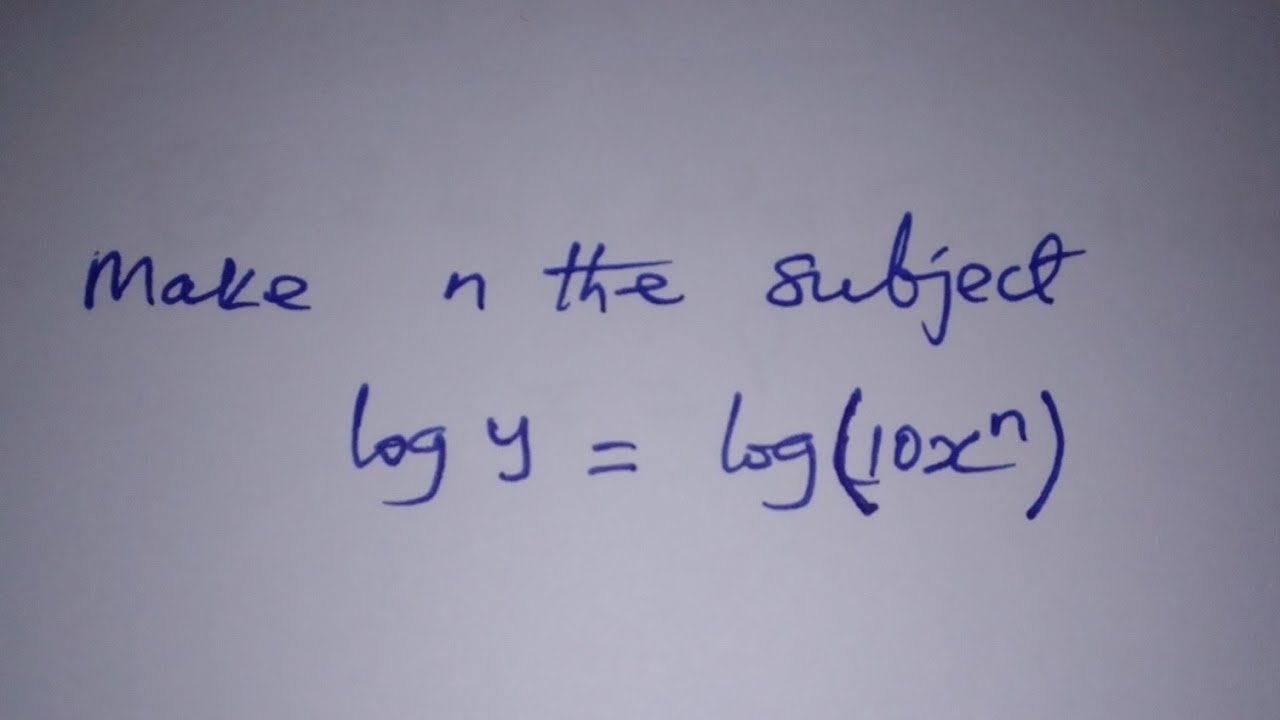 Make n the subject
log y = log(10xⁿ)